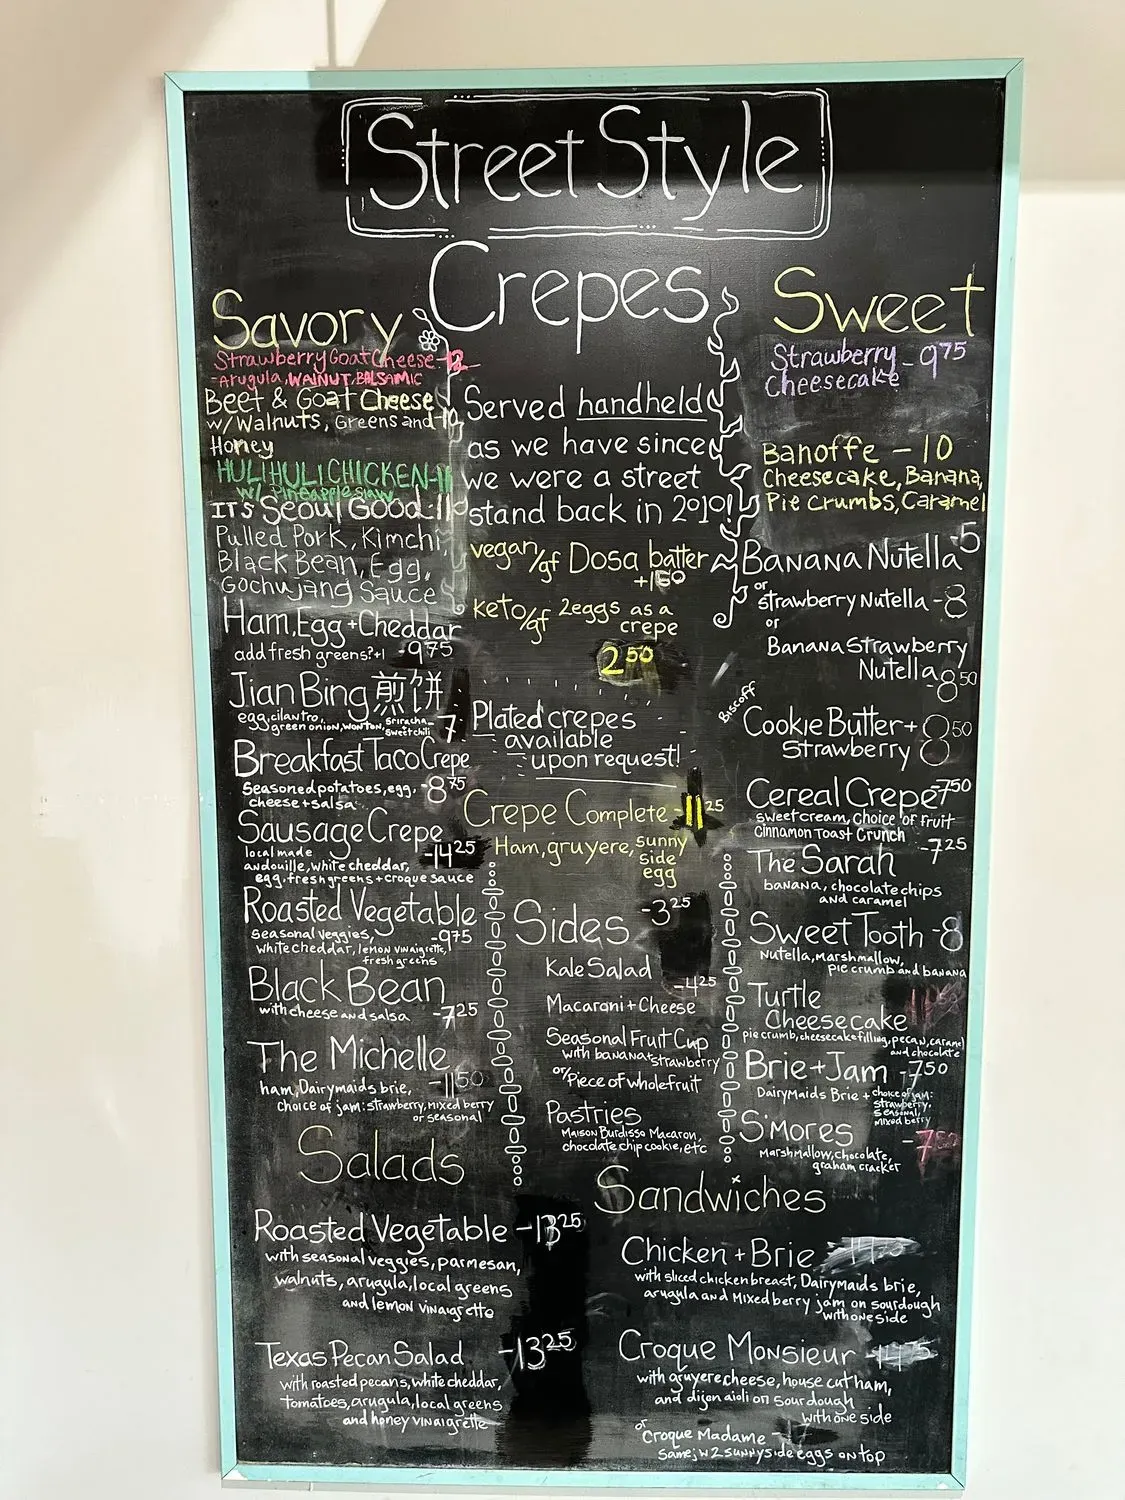 Street Style
Crepes
Savory
Strawberry Goat Cheese -12
-Arugula, WALNUT, BALSAMIC
Beet & Goat Cheese
w/Walnuts, Greens and
Honey
HULI HULI CHICKEN-11
w/ Pineapple slaw
IT'S Seoul Good-11
Pulled Pork, Kimchi,
Black Bean, Egg,
Gochujang Sauce
Ham, Egg + Cheddar
add fresh greens? +1 -9 75
Jian Bing 煎饼
egg, cilantro,
green onion, wonton, sriracha
sweet chili -7
Breakfast Taco Crepe
Seasoned potatoes, egg, -8 75
cheese + salsa
Sausage Crepe
local made -14 25
andouille, white cheddar,
egg, fresh greens + croque sauce
Roasted Vegetable
seasonal veggies, -9 75
white cheddar, lemon vinaigrette,
fresh greens
Black Bean
with cheese and salsa -7 25
The Michelle
ham, Dairymaids brie, -11 50
choice of jam: strawberry, mixed berry
or seasonal
Served handheld
as we have since
we were a street
stand back in 2010!
vegan/gf Dosa batter
+1 50
keto/gf 2eggs as a
crepe
2 50
Plated crepes
available
upon request!
Crepe Complete -11 25
Ham, gruyere, sunny
side
egg
Sides -3 25
Kale Salad
-4 25
Macaroni + Cheese
Seasonal Fruit Cup
with banana + strawberry
or/Piece of whole fruit
Pastries
Maison Burdisso Macaron,
chocolate chip cookie, etc
Sweet
Strawberry -9 75
Cheesecake
Banoffe - 10
Cheesecake, Banana,
Pie crumbs, Caramel
Banana Nutella -5
or
strawberry Nutella -8
or
Banana Strawberry
Nutella -8 50
Biscoff
Cookie Butter +
Strawberry 8 50
Cereal Crepe -7 50
sweet cream, choice of fruit
Cinnamon Toast Crunch
The Sarah -7 25
banana, chocolate chips
and caramel
Sweet Tooth -8
Nutella, marshmallow,
pie crumb and banana
Turtle
Cheesecake
pie crumb, cheesecake filling, pecan, caramel
and chocolate
Brie + Jam -7 50
Dairymaids Brie + choice of jam:
strawberry,
seasonal,
mixed berry
S'mores -7 50
Marshmallow, chocolate,
graham cracker
Salads
Roasted Vegetable -13 25
with seasonal veggies, parmesan,
walnuts, arugula, local greens
and lemon vinaigrette
Texas Pecan Salad -13 25
with roasted pecans, white cheddar,
tomatoes, arugula, local greens
and honey vinaigrette
Sandwiches
Chicken + Brie
with sliced chicken breast, Dairymaids brie,
arugula and Mixed berry jam on sourdough
with one side
Croque Monsieur
with gruyere cheese, house cut ham,
and dijon aioli on sourdough
with one side
or
Croque Madame -17
Same; w 2 sunnyside eggs on top